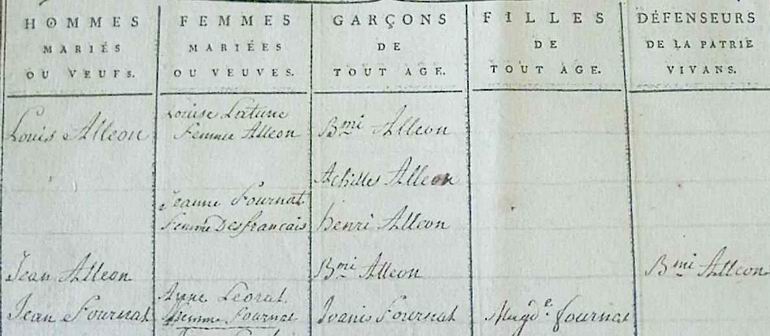 HOMMES MARIÉS OU VEUFS.
FEMMES MARIÉES OU VEUVES.
GARÇONS DE TOUT AGE.
FILLES DE TOUT AGE.
DÉFENSEURS DE LA PATRIE VIVANS.
Louise Latune
Louis Alleon femme Alleon Bmi Alleon
Achilles Alleon
Jeanne Fournat
femme Desfrancais henri Alleon
Jean Alleon Bmi Alleon Bmi Alleon
Anne Leorat
Jean Fournat femme Fournat Ivanis Fournat Magde fournat